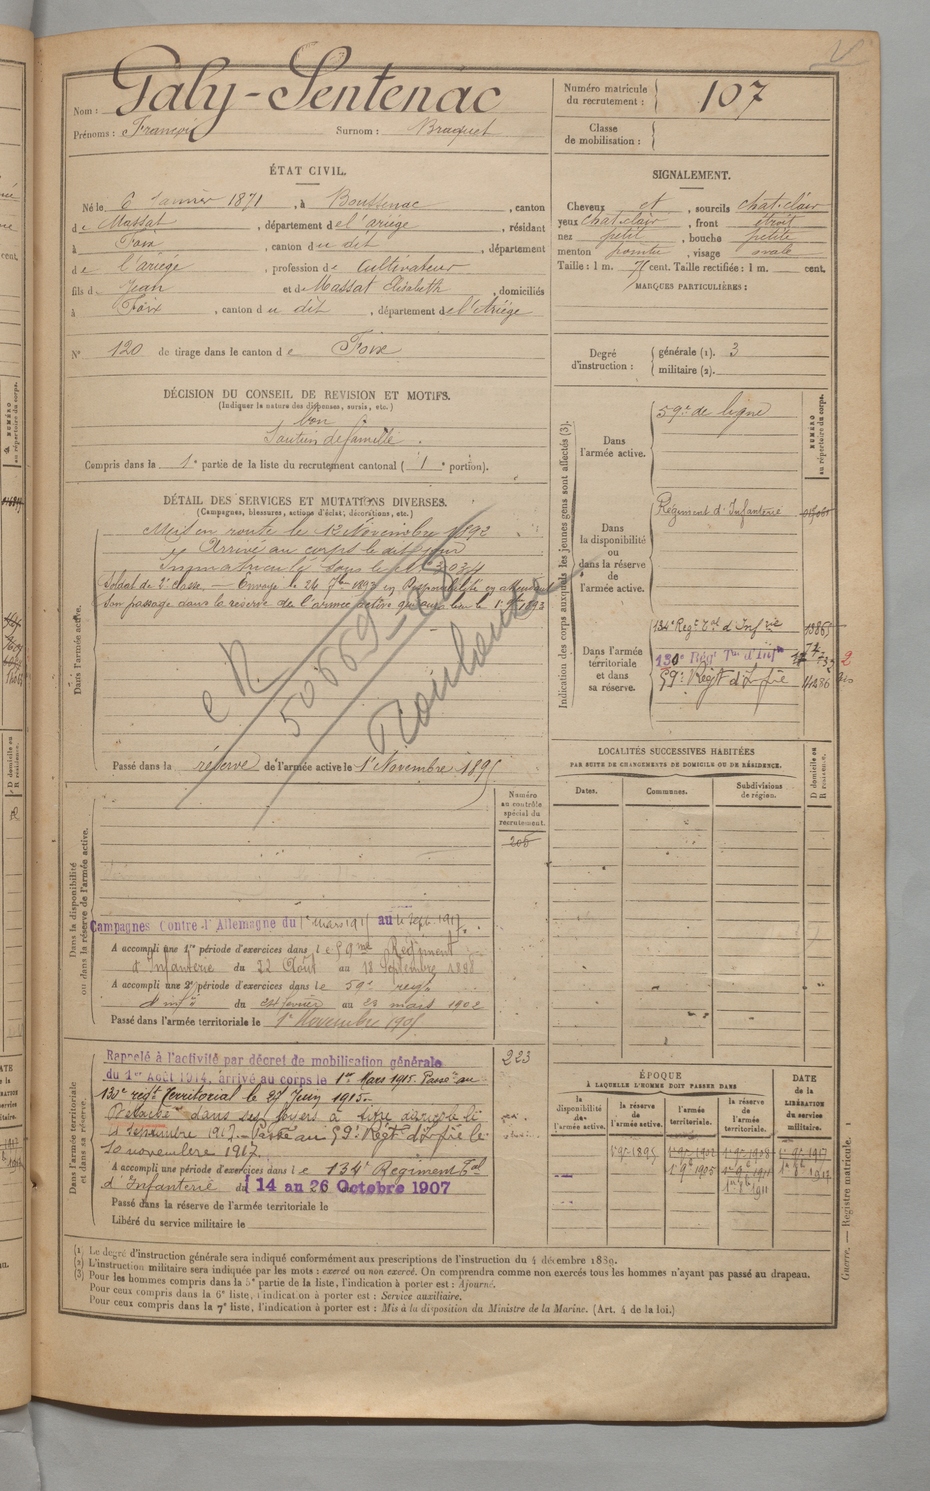 Nom : Galy-Sentenac
Prénoms : François Surnom : Braquet
Numéro matricule du recrutement : 107
Classe de mobilisation :
ÉTAT CIVIL.
Né le 6 Janvier 1871, à Boussenac, canton
de Massat, département de l'ariége, résidant
à Foix, canton du dit, département
de l'ariége, profession de Cultivateur
fils de Jean et de Massat Elisabeth, domiciliés
à Foix, canton du dit, département de l'Ariége
N° 120 de tirage dans le canton de Foix
SIGNALEMENT.
Cheveux et, sourcils chat-clair
yeux chat-clair, front étroit
nez petit, bouche petite
menton pointu, visage ovale
Taille : 1 m. cent. Taille rectifiée : 1 m. cent.
MARQUES PARTICULIÈRES :
Degré d'instruction : générale (1). 3
militaire (2).
DÉCISION DU CONSEIL DE REVISION ET MOTIFS.
(Indiquer la nature des dispenses, sursis, etc.)
bon
Soutien de famille.
Compris dans la 1e partie de la liste du recrutement cantonal (1e portion).
DÉTAIL DES SERVICES ET MUTATIONS DIVERSES.
(Campagnes, blessures, actions d'éclat, décorations, etc.)
Dans l'armée active.
Mis en route le 12 Novembre 1892
Arrivé au corps le dit jour
Immatriculé sous le N° 3034
Soldat de 2e classe. — Envoyé le 26 7bre 1893 en Disponibilité en attendant
son passage dans la réserve de l'armée active qui aura lieu le
Toulouse
Passé dans la réserve de l'armée active le 1er Novembre 1895
Indication des corps auxquels les jeunes gens sont affectés (3).
NUMÉRO au répertoire du corps.
Dans l'armée active.
59e de ligne
Dans la disponibilité ou dans la réserve de l'armée active.
Régiment d'Infanterie
Dans l'armée territoriale et dans sa réserve.
134e Regt Tal d'Infrie
130e Régt Tal d'Infie
59e Régt d'Infie
LOCALITÉS SUCCESSIVES HABITÉES
PAR SUITE DE CHANGEMENTS DE DOMICILE OU DE RÉSIDENCE.
Dates. Communes. Subdivisions de région. D domicile ou R résidence.
Dans la disponibilité ou dans la réserve de l'armée active.
Numéro au contrôle spécial du recrutement.
Campagnes Contre l'Allemagne du 1er mars 1915 au 4 Sept 1917.
A accompli une 1re période d'exercices dans le 59me Régiment
d'Infanterie du 22 Août au 18 Septembre 1898
A accompli une 2e période d'exercices dans le 59e regt
d'infie du 24 février au 23 mars 1902
Passé dans l'armée territoriale le 1er Novembre 1905
Dans l'armée territoriale et dans sa réserve.
223
Rappelé à l'activité par décret de mobilisation générale
du 1er Août 1914. arrivé au corps le 1er Mars 1915. Passé au
130e regt Territorial le 27 Juin 1915.
Détaché dans ses foyers à titre agricole le
4 Septembre 1917. Passé au 59e Régt d'Infie le
10 novembre 1917.
A accompli une période d'exercices dans le 134e Regiment Tal
d'Infanterie du 14 au 26 Octobre 1907
Passé dans la réserve de l'armée territoriale le
Libéré du service militaire le
ÉPOQUE
À LAQUELLE L'HOMME DOIT PASSER DANS
la disponibilité de l'armée active. la réserve de l'armée active. l'armée territoriale. la réserve de l'armée territoriale.
DATE de la LIBÉRATION du service militaire.
(1) Le degré d'instruction générale sera indiqué conformément aux prescriptions de l'instruction du 4 décembre 1889.
(2) L'instruction militaire sera indiquée par les mots : exercé ou non exercé. On comprendra comme non exercés tous les hommes n'ayant pas passé au drapeau.
(3) Pour les hommes compris dans la 5e partie de la liste, l'indication à porter est : Ajourné.
Pour ceux compris dans la 6e liste, l'indication à porter est : Service auxiliaire.
Pour ceux compris dans la 7e liste, l'indication à porter est : Mis à la disposition du Ministre de la Marine. (Art. 4 de la loi.)
Guerre. — Registre matricule. 1